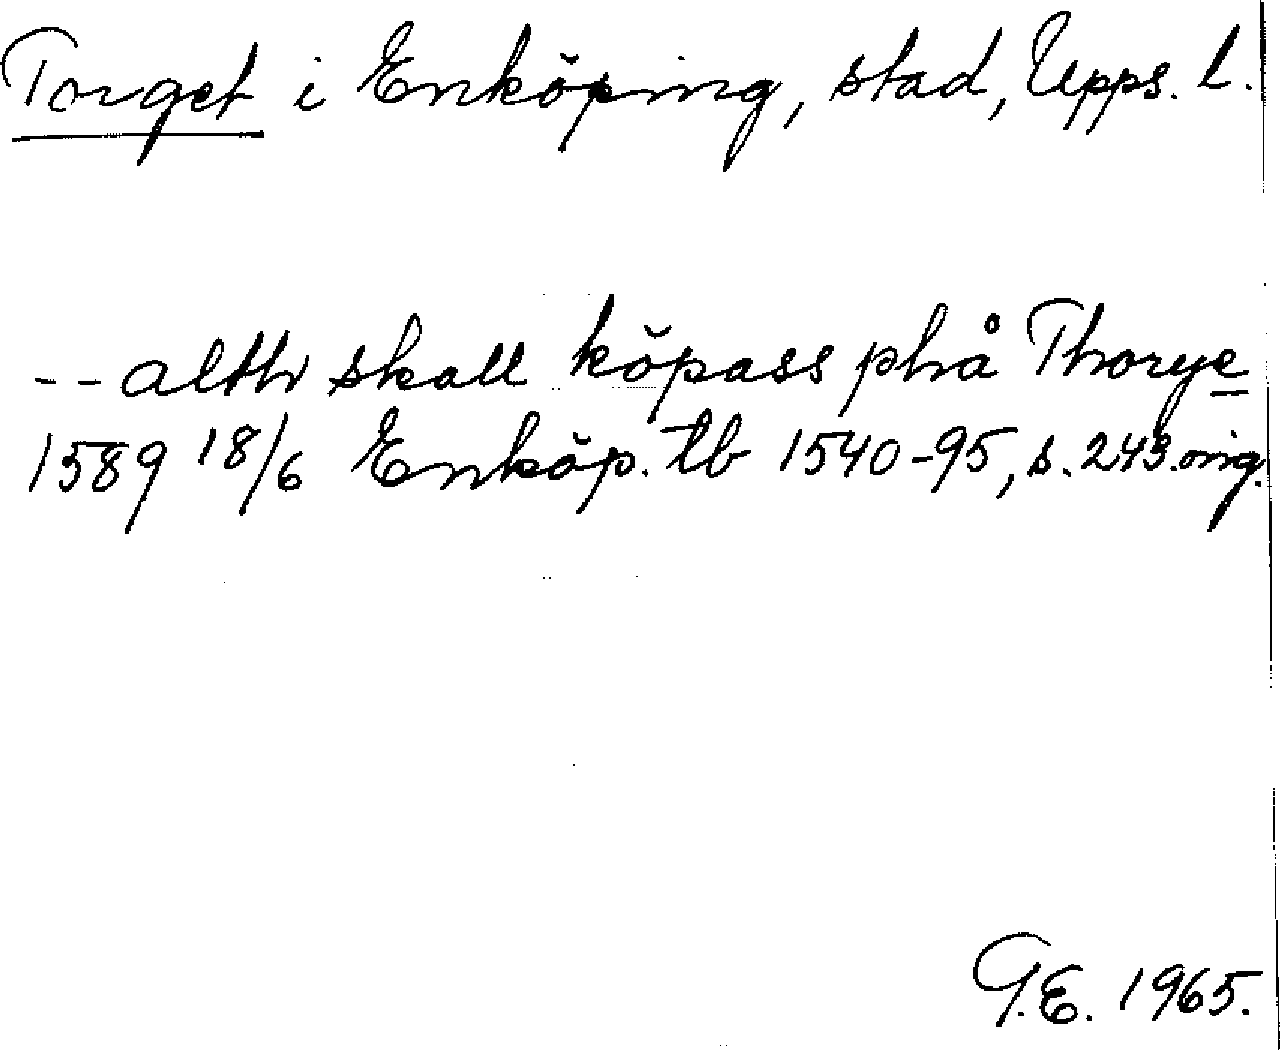 Torget i Enköping, stad, Upps. l.
-- alth skall köpass phå Thorge
1589 18/6 Enköp. tb 1540-95, s. 243. orig.
G.E. 1965.